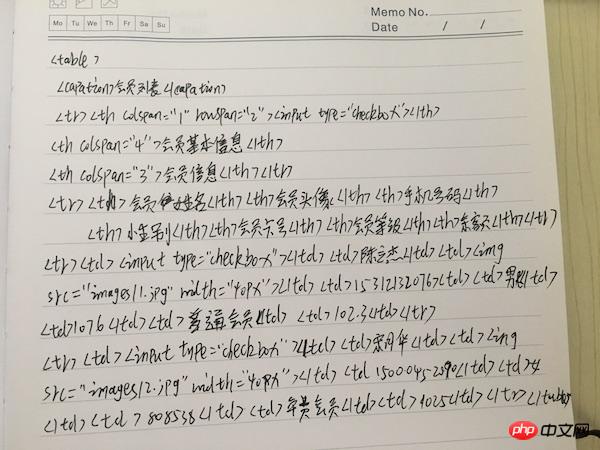 Memo No.
Mo Tu We Th Fr Sa Su
Date / /
<table>
<capation>会员列表</capation>
<tr><th colspan="1" rowspan="2"><input type="checkbox"></th>
<th colspan="4">会员基本信息</th>
<th colspan="3">会员信息</th></tr>
<tr><th>会员姓名</th><th>会员头像</th><th>手机号码</th>
<th>性别</th><th>会员卡号</th><th>会员等级</th><th></th></tr>
<tr><td><input type="checkbox"></td><td>陈之杰</td><td><img
src="images/1.jpg" width="40px"></td><td>15312132076<td><td>男</td>
<td>1076</td><td>普通会员</td><td>102.3</td></tr>
<tr><td><input type="checkbox"></td><td></td><td><img
src="images/2.jpg" width="40px"></td><td 1500045-2890</td><td>女
</td><td>808538</td><td>年费会员</td><td>4025</td></tr></table>
php 中文网